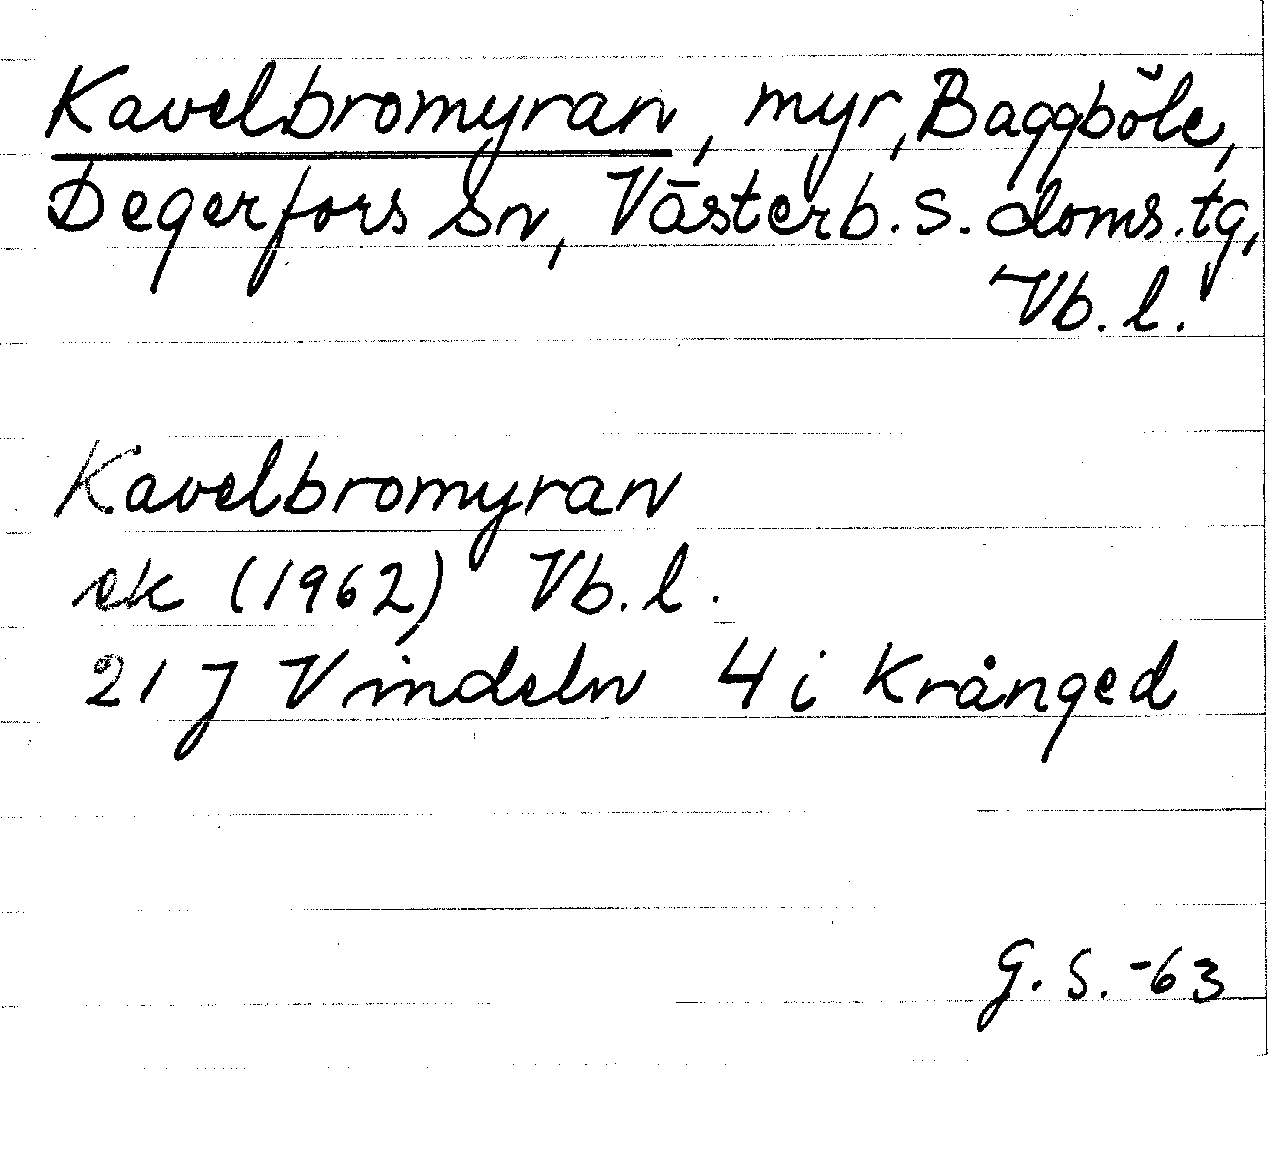 Kavelbromyran, myr, Baggböle,
Degerfors sn, Västerb. s. doms. tg,
Vb. l.
Kavelbromyran
ek (1962) Vb. l.
21 J Vindeln 4 i Krånged
G. S. -63